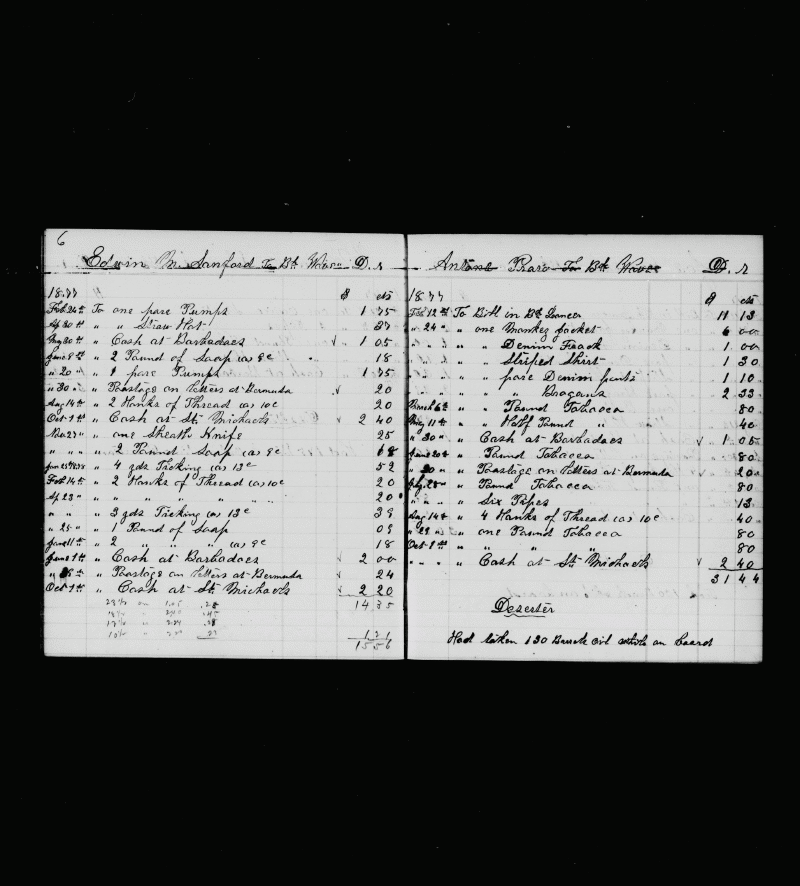 6
Edwin M. Sanford To Bk Wave D. r
1877 $ cts
Feb 24th To one pare Pumps 1 75
Ap 30th " " Straw Hat 37
May 30th " Cash at Barbadoes √ 1 05
June 8th " 2 Pound of Soap (a) 9c 18
" 20 " " 1 pare Pumps 1 75
" 30 " " Postage on letters at Bermuda √ 20
Aug 14th " 2 Hanks of Thread (a) 10c 20
Oct 9th " Cash at St. Michaels √ 2 40
Nov 27 " " one Sheath Knife 25
" " " " 2 Pound Soap (a) 9c 18
" 4 yds Ticking (a) 13c 52
Feb 14th " 2 Hanks of Thread (a) 10c 20
Ap 23 " " " " " " " 20
" " " 3 yds Ticking (a) 13c 39
" 25 " " 1 Pound of Soap 09
June 11th " 2 " " " (a) 9c 18
June 1st " Cash at Barbadoes √ 2 00
" Postage on letters at Bermuda √ 24
Oct 9th " Cash at St. Michaels √ 2 20
14 35
1 21
15 56
Antone Praro To Bk Wave D. r
1877 $ cts
Feb 12th To Bill in Bk Lancer 11 13
" 24 " " one Monkey Jacket 6 00
" " " " Denim Frock 1 00
" " " " Striped Shirt 1 30
" " " " pare Denim pants 1 10
" " " " " Brogans 2 33
March 6th " " Pound Tobacco 80
May 11th " " Half Pound " 40
" 30 " " Cash at Barbadoes √ 1 05
June 20th " Pound Tobacco 80
" 30 " " Postage on letters at Bermuda √ 20
" Pound Tobacco 80
" " " " Six Pipes 13
Aug 14th " 4 Hanks of Thread (a) 10c 40
" 29 " " one Pound Tobacco 80
Oct 8th " " " " 80
" " " " Cash at St. Michaels √ 2 40
31 44
Deserter
Had taken 130 Barrels oil while on board